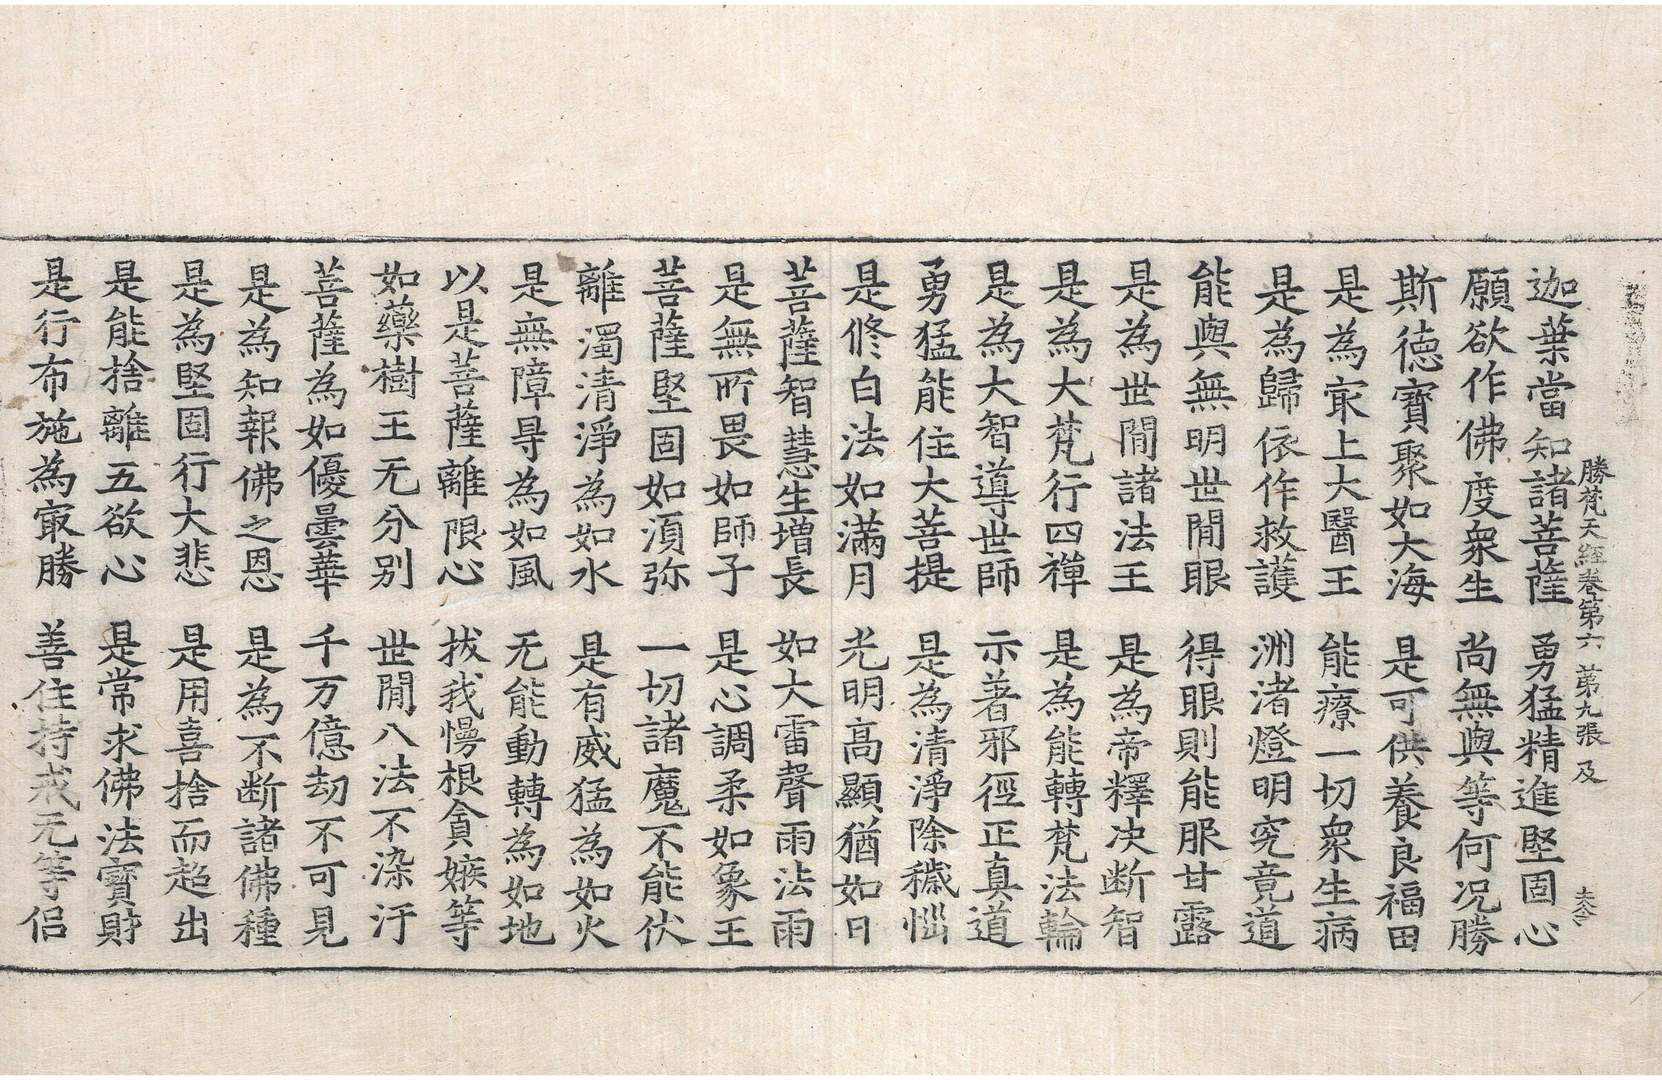 勝梵天經卷第六 第九張 及
迦葉當知諸菩薩 勇猛精進堅固心
願欲作佛度衆生 尚無與等何况勝
斯德寶聚如大海 是可供養良福田
是為㝡上大醫王 能療一切衆生病
是為歸依作救護 洲渚燈明究竟道
能與無明世閒眼 得眼則能服甘露
是為世閒諸法王 是為帝釋决断智
是為大梵行四禪 是為能轉梵法輪
是為大智導世師 示著邪徑正真道
勇猛能住大菩提 是為清淨除穢惱
是修白法如滿月 光明高顯猶如日
菩薩智慧生增長 如大雷聲雨法雨
是無所畏如師子 是心調柔如象王
菩薩堅固如湏弥 一切諸魔不能伏
離濁清淨為如水 是有威猛為如火
是無障㝵為如風 无能動轉為如地
以是菩薩離限心 拔我慢根貪嫉等
如藥樹王无分別 世閒八法不染汙
菩薩為如優曇華 千万億劫不可見
是為知報佛之恩 是為不断諸佛種
是為堅固行大悲 是用喜捨而超出
是能捨離五欲心 是常求佛法寶財
是行布施為㝡勝 善住持戒无等侣